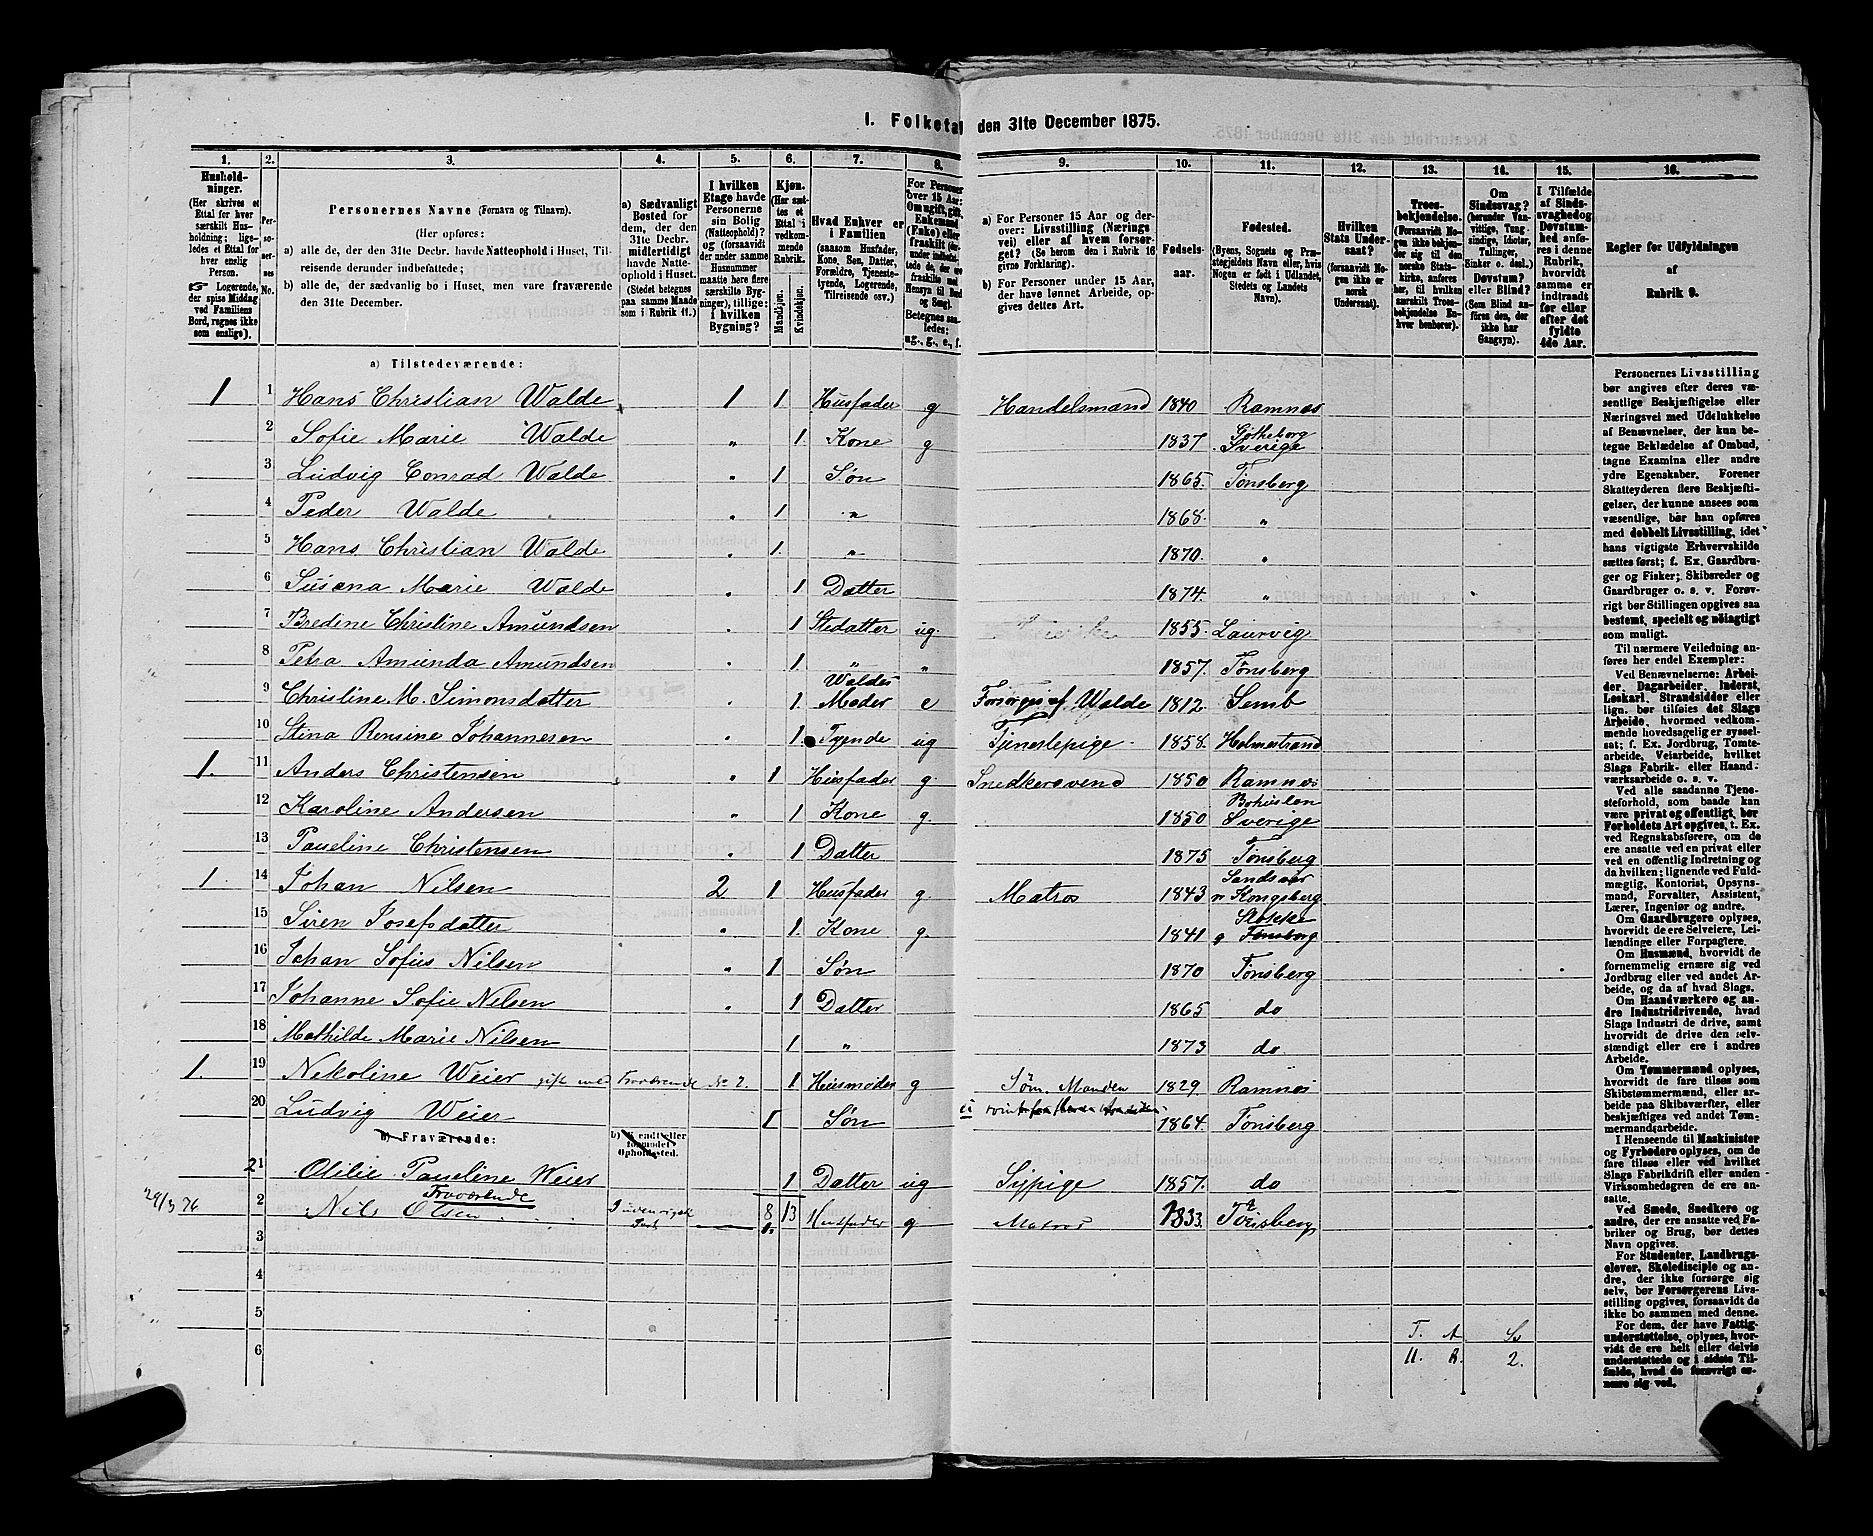 1. Folketal den 31te December 1875.
1. 2. 3. 4. 5. 6. 7. 8. 9. 10. 11. 12. 13. 14. 15. 16.
Husholdninger.
(Her skrives et Ettal for hver særskilt Husholdning; ligeledes et Ettal for hver enslig Person.
Logerende, der spise Middag ved Familiens Bord, regnes ikke som enslige).
Personernes No.
Personernes Navne (Fornavn og Tilnavn).
(Her opføres:
a) alle de, der den 31te Decbr. havde Natteophold i Huset, Tilreisende derunder indbefattede;
b) alle de, der sædvanlig bo i Huset, men vare fraværende den 31te December.
a) Sædvanligt Bosted for dem, der den 31te Decbr. midlertidigt havde Natteophold i Huset.
(Stedet betegnes paa samme Maade som i Rubrik 11.)
I hvilken Etage havde Personerne sin Bolig (Natteophold)? og (forsaavidt der under samme Husnummer maatte høre flere særskilte Bygninger), tillige: I hvilken Bygning?
Kjøn.
(Her sættes et Ettal i vedkommende Rubrik.
Mandkjøn. Kvindekjøn.
Hvad Enhver er i Familien
(saasom Husfader, Kone, Søn, Datter, Forældre, Tjenestetyende, Logerende, Tilreisende osv.)
For Personer over 15 Aar:
Betegnes saaledes:
ug., g., e., f.
a) For Personer 15 Aar og derover: Livsstilling (Næringsvei) eller af hvem forsørget? (Se herom den i Rubrik 16 givne Forklaring).
b) For Personer under 15 Aar, der have lønnet Arbeide, opgives dettes Art.
Fødselsaar.
Fødested.
(Byens, Sognets og Præstegjeldets Navn eller, hvis Nogen er født i Udlandet, Stedets og Landets Navn).
Hvilken Stats Undersaat?
(forsaavidt Nogen ikke er norsk Undersaat).
Troesbekjendelse.
(Forsaavidt Nogen ikke bekjender sig til den norske Statskirke, anføres her, til hvilken særskilt Troesbekjendelse Enhver henhører).
Om Sindssvag?
(herunder Vanvittige, Tungsindige, Idioter, Tullinger, Sinker o. desl.)
Døvstum? eller Blind?
(Som Blind anføres den, der ikke har Gangsyn).
I Tilfælde af Sindssvaghed og Døvstumhed anføres i denne Rubrik, hvorvidt samme er indtraadt før eller efter det fyldte 4de Aar.
Regler for Udfyldningen
af
Rubrik 9.
a) Tilstedeværende:
1 1 Hans Christian Walde 1 1 Husfader g Handelsmand 1840 Ramnæs
2 Sofie Marie Walde " 1 Kone g 1837 Gøtheborg Sverige
3 Ludvig Conrad Walde " 1 Søn 1865 Tønsberg
4 Peder Walde " 1 " 1868 "
5 Hans Christian Walde " 1 " 1870 "
6 Susena Marie Walde " 1 Datter 1874 "
7 Bredene Christine Amundsen " 1 Stedatter ug. 1855 Laurvig
8 Petra Amunda Amundsen " 1 " " 1857 Tønsberg
9 Christine M. Simonsdatter " 1 Waldes Moder e Forsørges af Walde 1812 Semb
10 Stina Rensine Johannesen " 1 Tyende ug Tjenestepige 1858 Holmestrand
1. 11 Anders Christensen " 1 Husfader g. Snedkersvend 1850 Ramnæs
12 Karoline Andersen " 1 Kone g. 1850 Bohuslen Sverige
13 Pauline Christensen " 1 Datter 1875 Tønsberg
1. 14 Johan Nilsen 2 1 Husfader g. Matros 1843 Sandsvær Kongsberg
15 Siren Josefsdatter " 1. Kone g. 1841 Stokke Tønsberg
16 Johan Sofus Nilsen " 1 Søn 1870 Tønsberg
17 Johanne Sofie Nilsen " 1 Datter 1865 do
18 Mathilde Marie Nilsen 1 " 1873 do
1. 19 Nekoline Weier gift med Fraværende No 2. 1 Husmoder g Søm. Manden 1829 Ramnæs
20 Ludvig Weier 1 Søn 1864 Tønsberg
b) Fraværende:
b) Kjendt eller formodet Opholdssted.
21 Otilie Pauline Weier 1 Datter ug Sypige 1857 do
Fraværende
29/3 76 2 Nils Olsen Indenrigsk 8 13 Husfader g Matros 1833 Tønsberg
3
4
5
6
T. A. S.
11. R. 2.
Personernes Livsstilling bør angives efter deres væsentlige Beskjæftigelse eller Næringsvei med Udelukkelse af Benævnelser, der kun betegne Beklædelse af Ombud, tagne Examina eller andre ydre Egenskaber. Forener Skatteyderen flere Beskjæftigelser, der kunne ansees som væsentlige, bør han opføres med dobbelt Livsstilling, idet hans vigtigste Erhvervskilde sættes først; f. Ex. Gaardbruger og Fisker; Skibsreder og Gaardbruger o. s. v. Forøvrigt bør Stillingen opgives saa bestemt, specielt og nøiagtigt som muligt.
Til nærmere Veiledning anføres her endel Exempler:
Ved Benævnelserne: Arbeider, Dagarbeider, Inderst, Løskarl, Strandsidder eller lign. bør tilføies det Slags Arbeide, hvormed vedkommende hovedsagelig er sysselsat; f. Ex. Jordbrug, Tomtearbeide, Veiarbeide, hvilket Slags Fabrik- eller Haandværksarbeide o. s. v.
Ved alle saadanne Tjenesteforhold, som baade kan være privat og offentligt, bør Forholdets Art opgives, t. Ex. ved Regnskabsførere, om de ere ansatte ved en privat eller ved en offentlig Indretning og da hvilken; lignende ved Fuldmægtig, Kontorist, Opsynsmand, Forvalter, Assistent, Lærer, Ingeniør og andre.
Om Gaardbrugere oplyses, hvorvidt de ere Selveiere, Leilændinge eller Forpagtere.
Om Husmænd, hvorvidt de fornemmelig ernære sig ved Jordbrug eller ved andet Arbeide, og da af hvad Slags.
Om Haandværkere og andre Industridrivende, hvad Slags Industri de drive, samt hvorvidt de drive den selvstændigt eller ere i andres Arbeide.
Om Tømmermænd oplyses, hvorvidt de fare tilsøs som Skibstømmermænd, eller arbeide paa Skibsværfter, eller beskjæftiges ved andet Tømmermandsarbeide.
I Henseende til Maskinister og Fyrbødere oplyses, om de fare tilsøs eller ved hvilket Slags Fabrikdrift eller anden Virksomhedsgren de ere ansatte.
Ved Smede, Snedkere og andre, der ere ansatte ved Fabriker og Brug, bør dettes Navn opgives.
For Studenter, Landbrugselever, Skoledisciple og andre, der ikke forsørge sig selv, bør Forsørgerens Livsstilling opgives, forsaavidt de ikke bo sammen med denne.
For dem, der have Fattigunderstøttelse, oplyses, hvorvidt de ere helt eller delvis understøttede og i sidste Tilfælde, hvad de forøvrigt ernære sig ved.